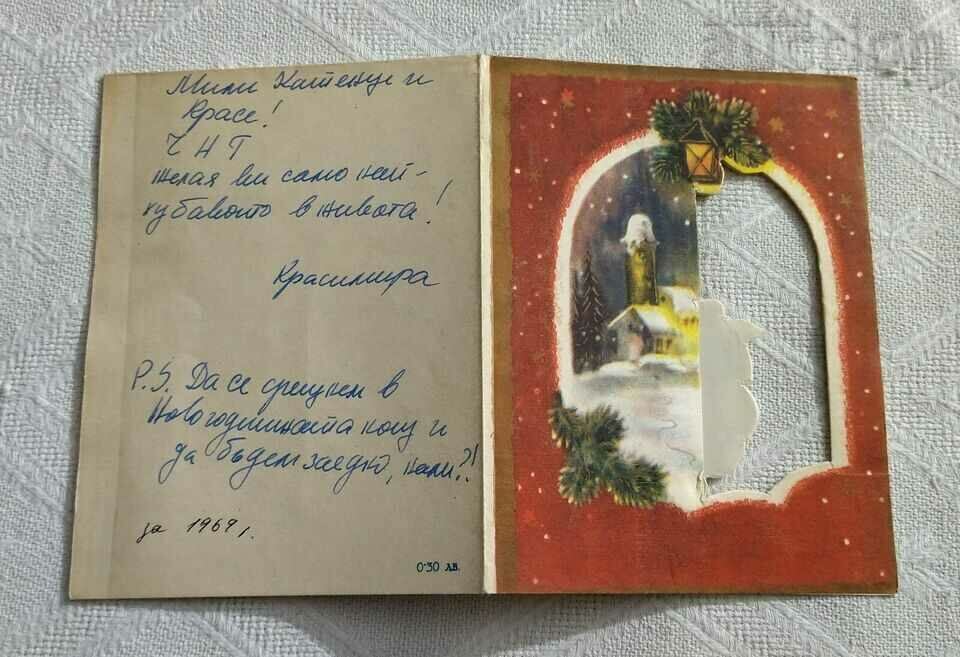 Мили Катенце и
Красе!
ЧНГ
желая ви само най-
хубавото в живота!
Красимира
P.S. Да се срещнем в
Новогодишната нощ и
да бъдем заедно, нали?!
за 1969 г.
0·30 лв.